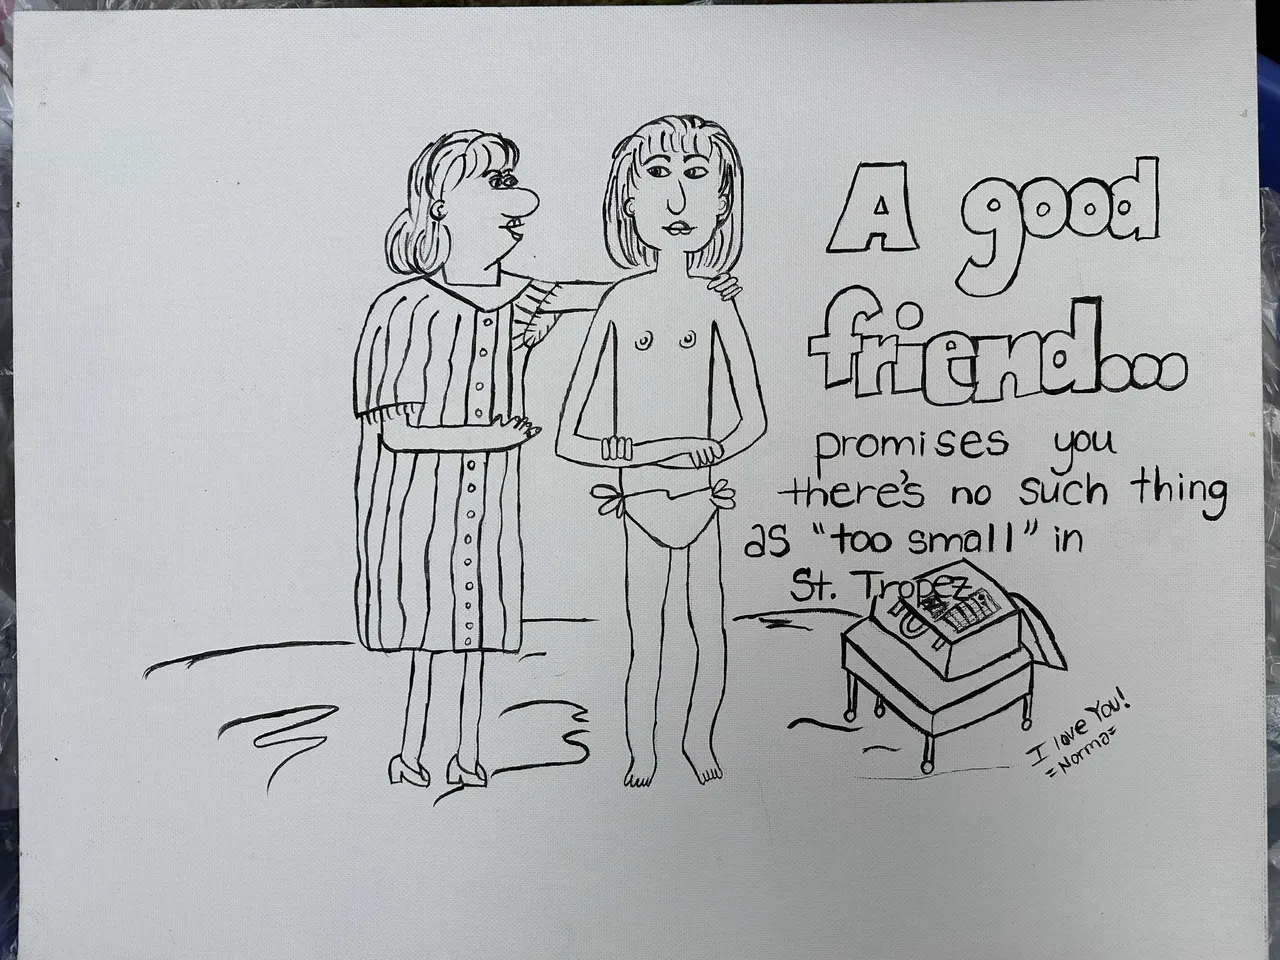 A good
friend...
promises you
there's no such thing
as "too small" in
St. Tropez
I love You!
=Norma=